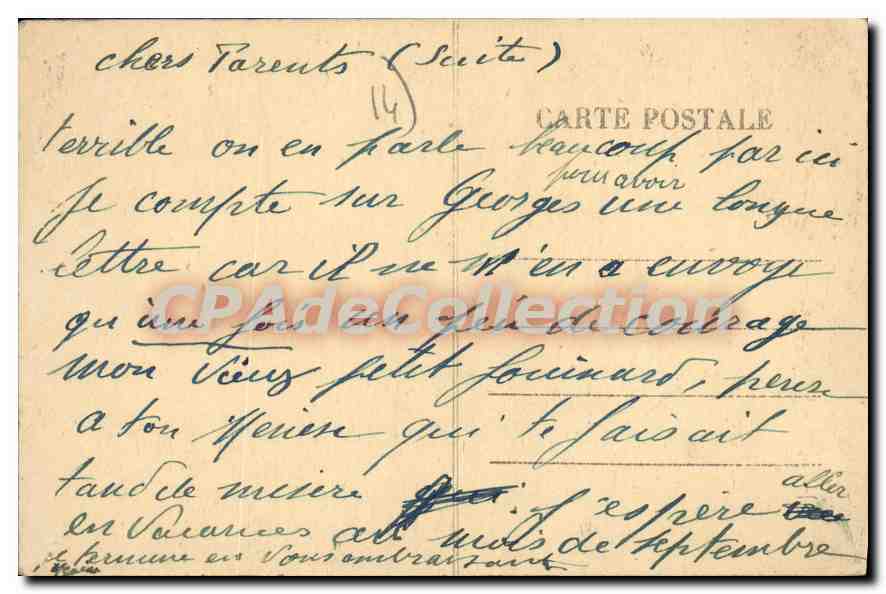 chers Parents (Suite)
14
CARTE POSTALE
terrible on en parle beaucoup par ici
pour avoir
Je compte sur Georges une longue
lettre car il ne m'en a envoye
CPAdeCollection
qu'une fois un peu de courage
mon vieux petit, pense
a ton qui te faisait
tand de misere j'espère aller
en vacances au mois de septembre
je termine en vous embrassant